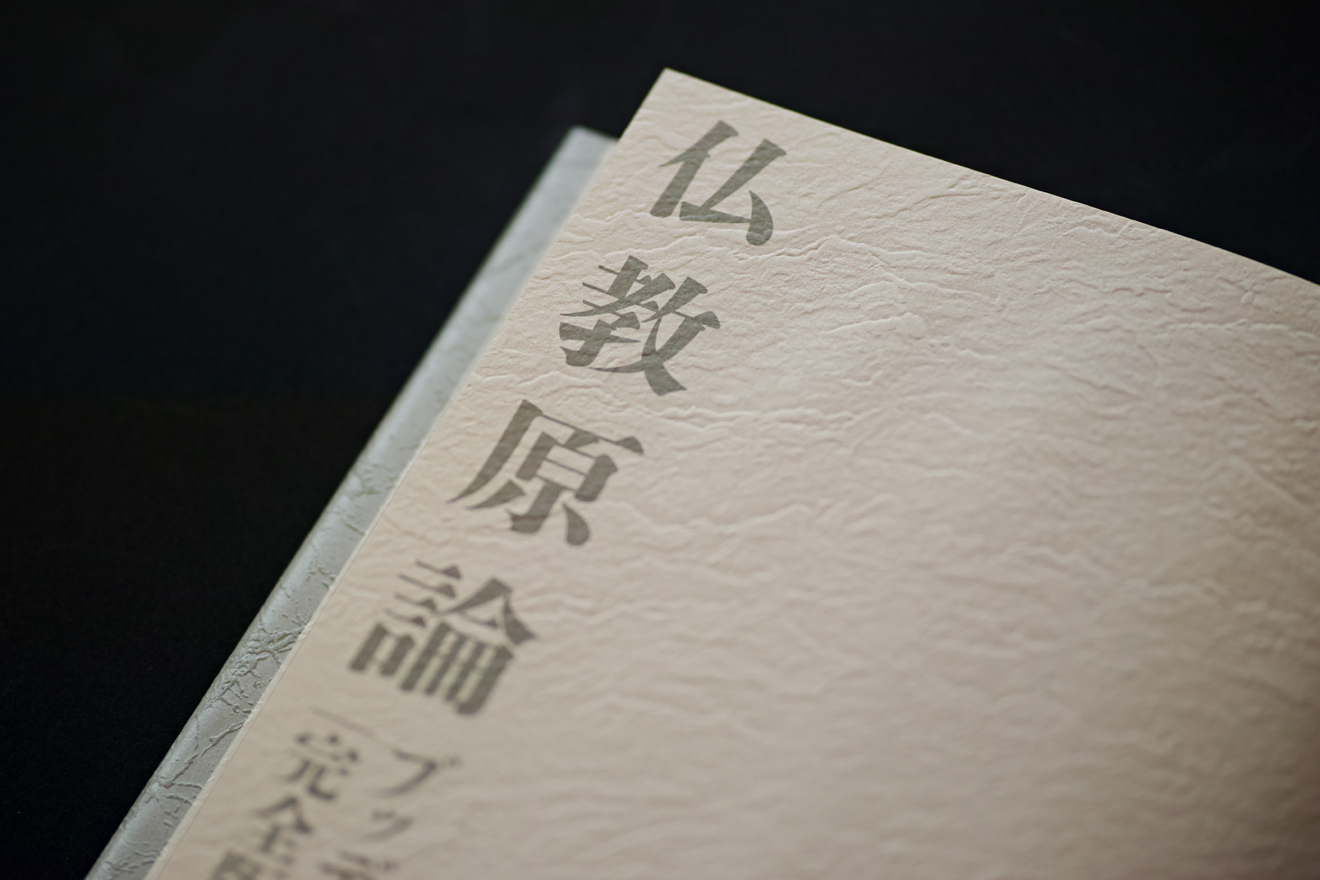 仏教原論
ブッデ
完全